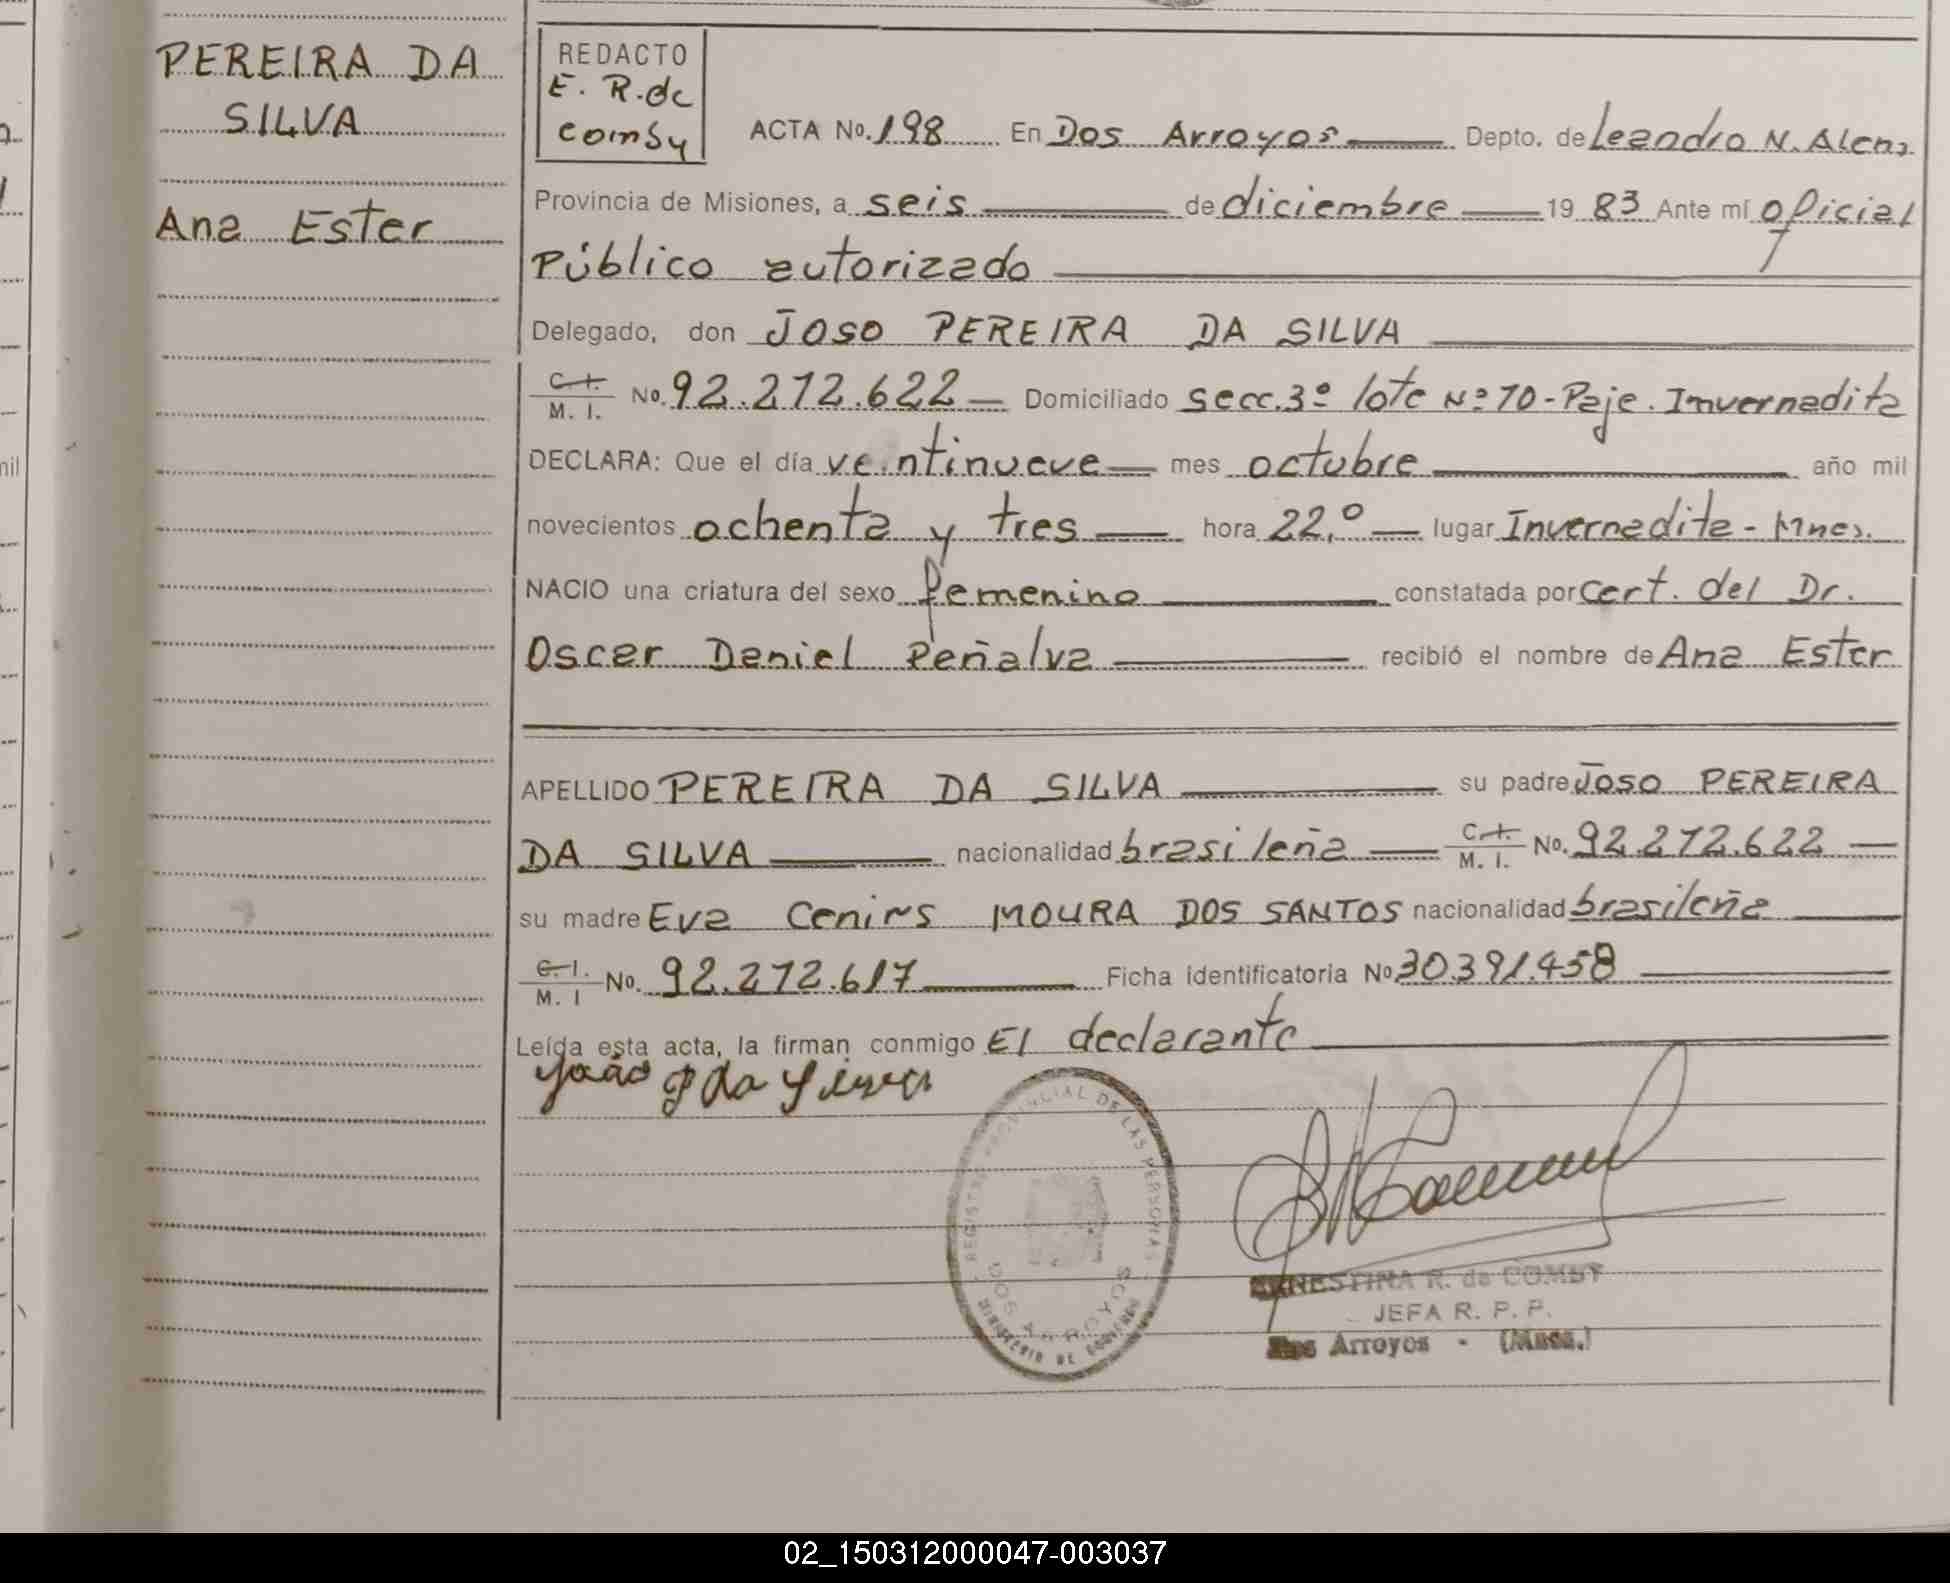 PEREIRA DA
SILVA
Ana Ester
REDACTO
E. R. de
Comby
ACTA No. 198 En Dos Arroyos Depto. de Leandro N. Alem
Provincia de Misiones, a seis de diciembre 19 83 Ante mí oficial
Público autorizado
Delegado, don JOSO PEREIRA DA SILVA
C. I.
M. I. No. 92.272.622 Domiciliado secc. 3º lote Nº 70 - Paje. Invernadita
DECLARA: Que el día veintinueve mes octubre año mil
novecientos ochenta y tres hora 22,º lugar Invernadita - Mnes.
NACIO una criatura del sexo femenino constatada por cert. del Dr.
Oscar Daniel Peñalva recibió el nombre de Ana Ester
APELLIDO PEREIRA DA SILVA su padre JOSO PEREIRA
DA SILVA nacionalidad brasileña C. I. M. I. No. 92.272.622
su madre Eva MOURA DOS SANTOS nacionalidad brasileña
C. I.
M. I No. 92.272.617 Ficha identificatoria No 30.391.458
Leída esta acta, la firman conmigo El declarante
João P da Silva
REGISTRO PROVINCIAL DE LAS PERSONAS
DOS ARROYOS
MINISTERIO DE GOBIERNO
ERNESTINA R. de COMBY
JEFA R. P. P.
Dos Arroyos - (Mnes.)
02_150312000047-003037